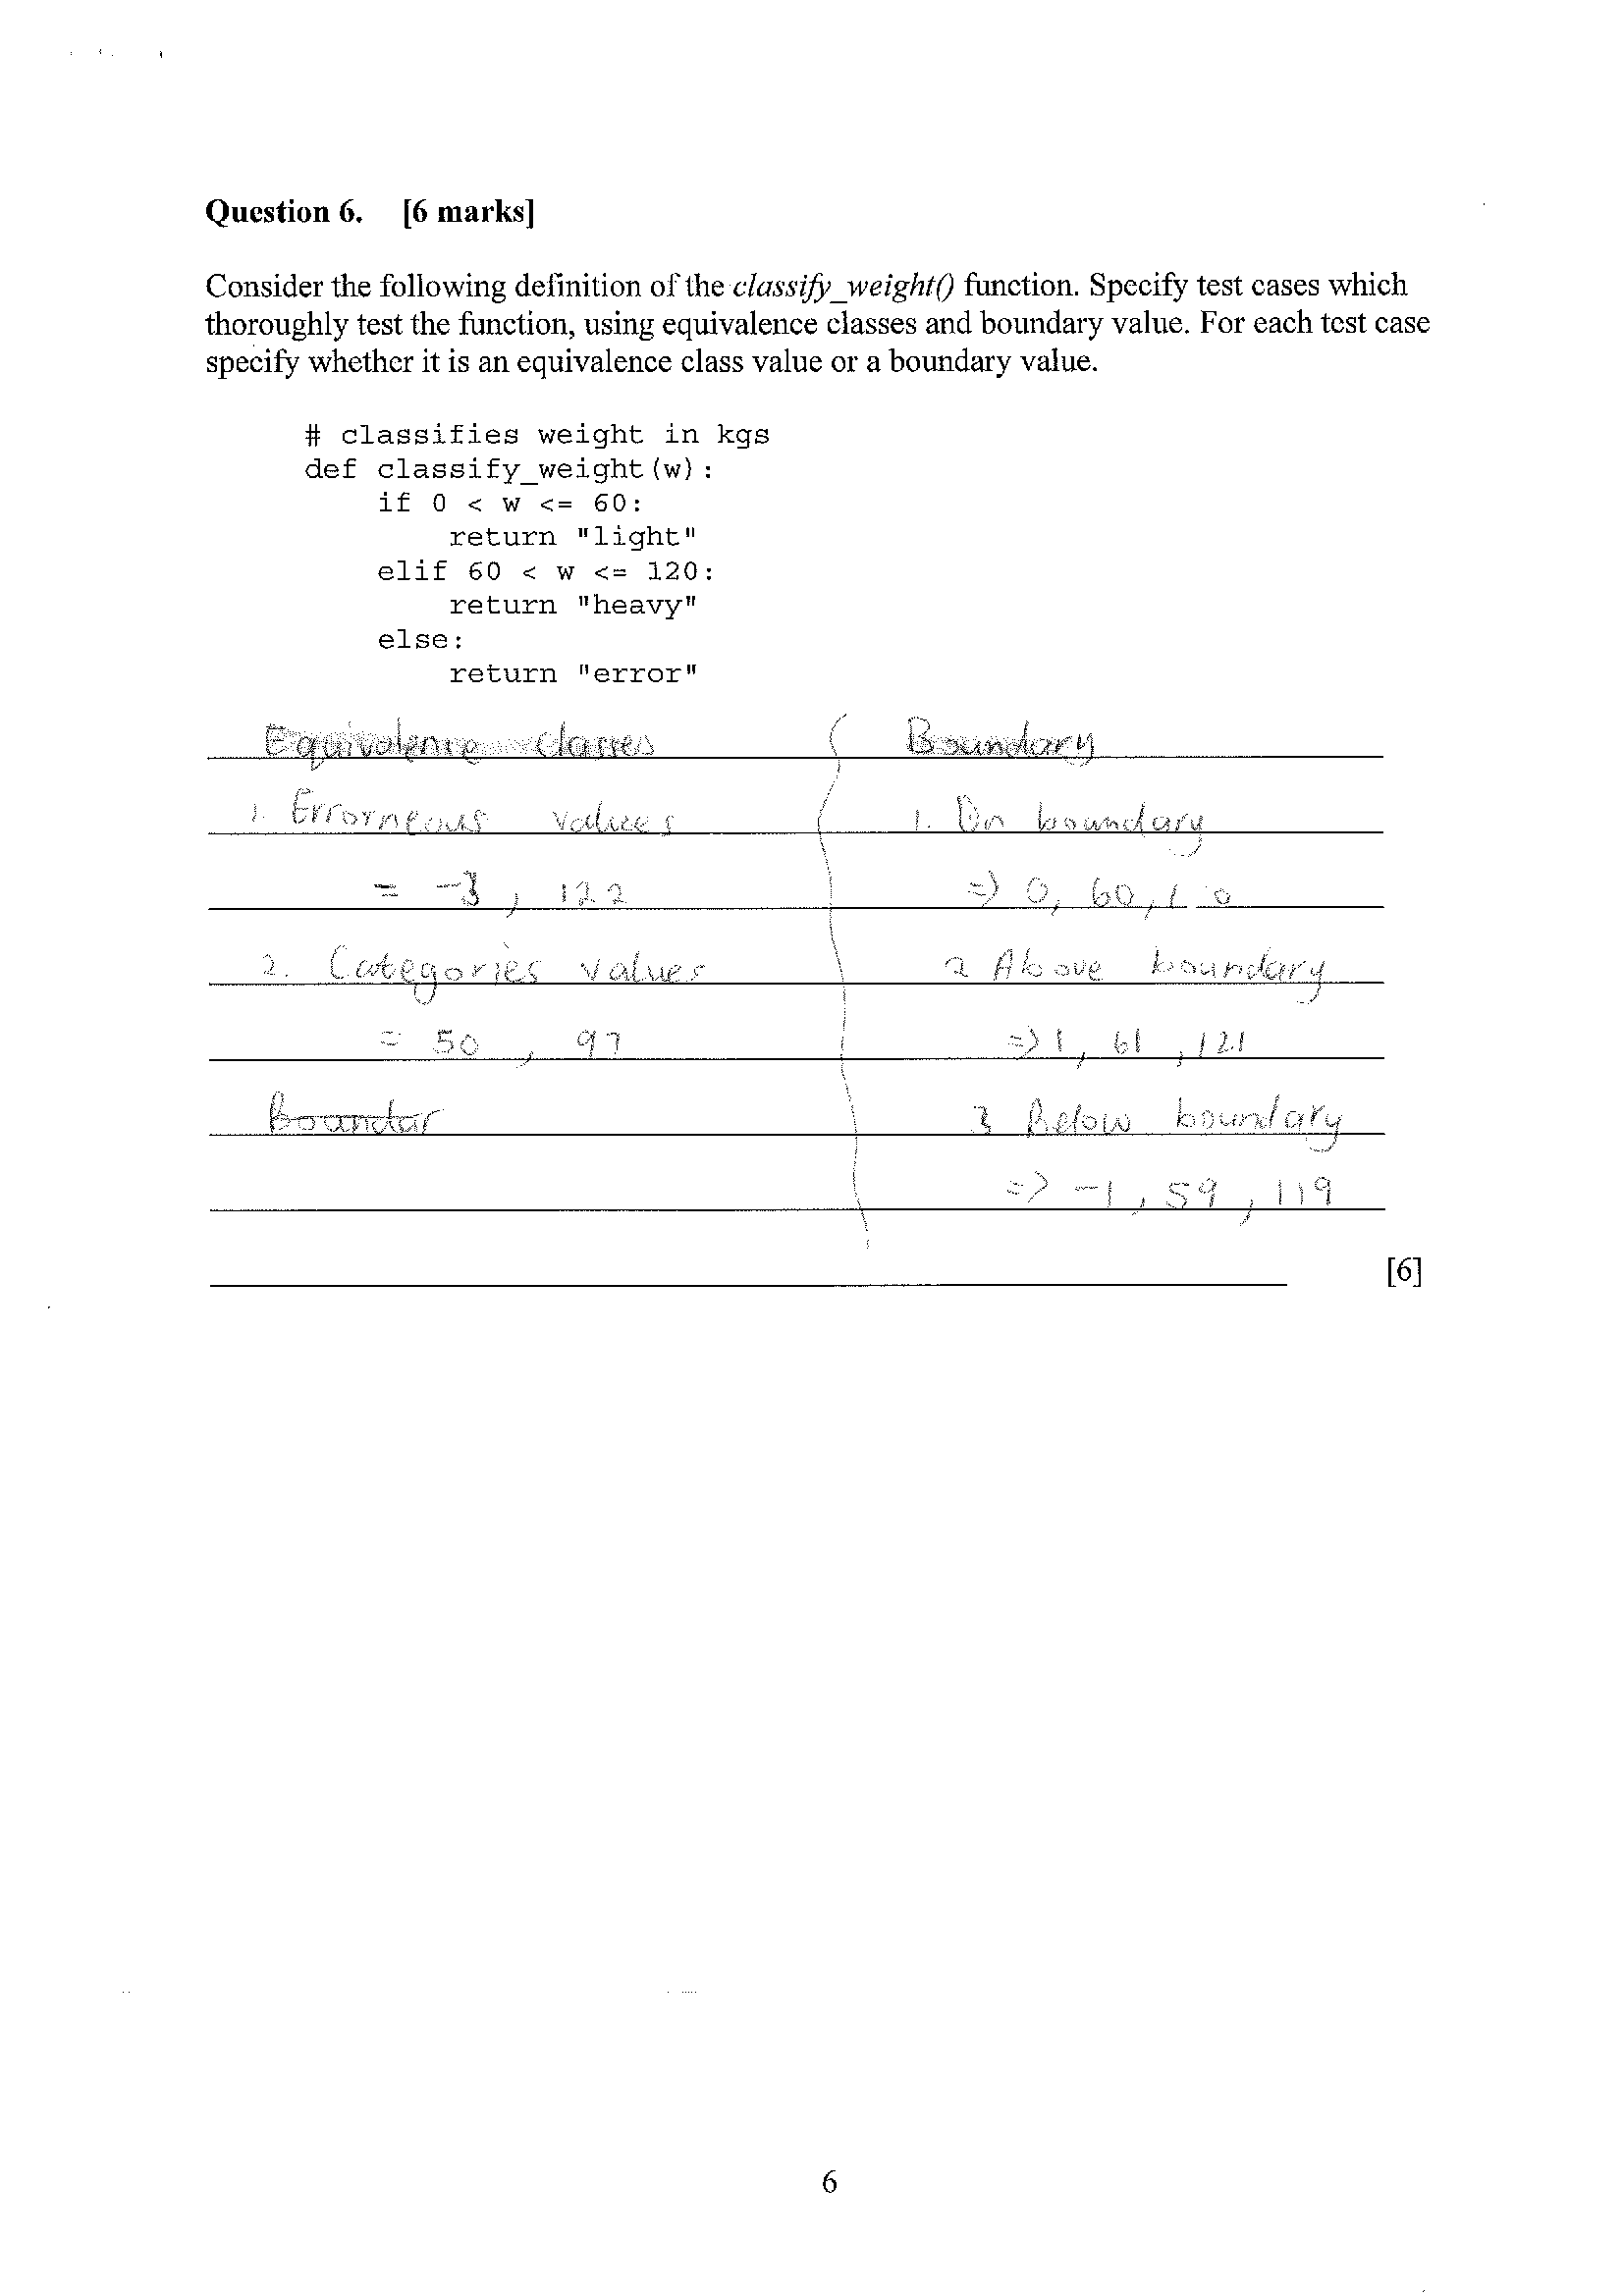 Question 6. [6 marks]
Consider the following definition of the classify_weight() function. Specify test cases which
thoroughly test the function, using equivalence classes and boundary value. For each test case
specify whether it is an equivalence class value or a boundary value.
# classifies weight in kgs
def classify_weight(w):
    if 0 < w <= 60:
        return "light"
    elif 60 < w <= 120:
        return "heavy"
    else:
        return "error"
Equivalence classes
1. Errorneous values
= -3, 122
2. Categories values
= 50, 97
Boundar
Boundary
1. On boundary
=> 0, 60,
2 Above boundary
=> 1, 61, 121
3 Below boundary
=> -1, 59, 119
[6]
6